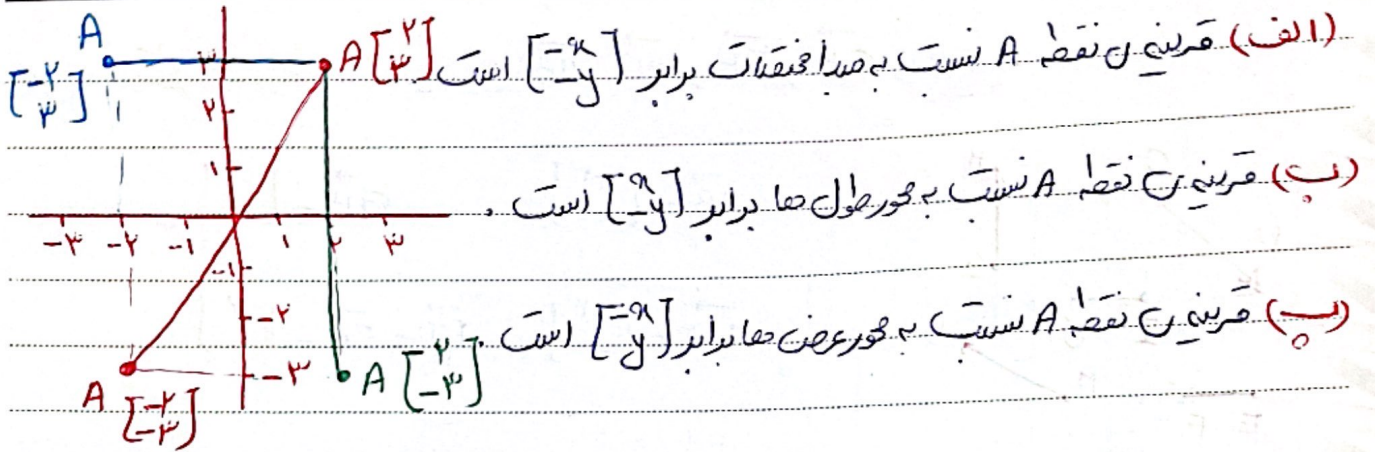 الف) قرینه‌ی نقطه A نسبت به مبدأ مختصات برابر [-x -y] است.
ب) قرینه‌ی نقطه A نسبت به محور طول ها برابر [x -y] است.
پ) قرینه‌ی نقطه A نسبت به محور عرض ها برابر [-x y] است.
A
[-۲ ۳]
A [۲ ۳]
۳
۲
۱
-۳ -۲ -۱ ۱ ۲ ۳
-۱
-۲
-۳
A [-۲ -۳]
A [۲ -۳]